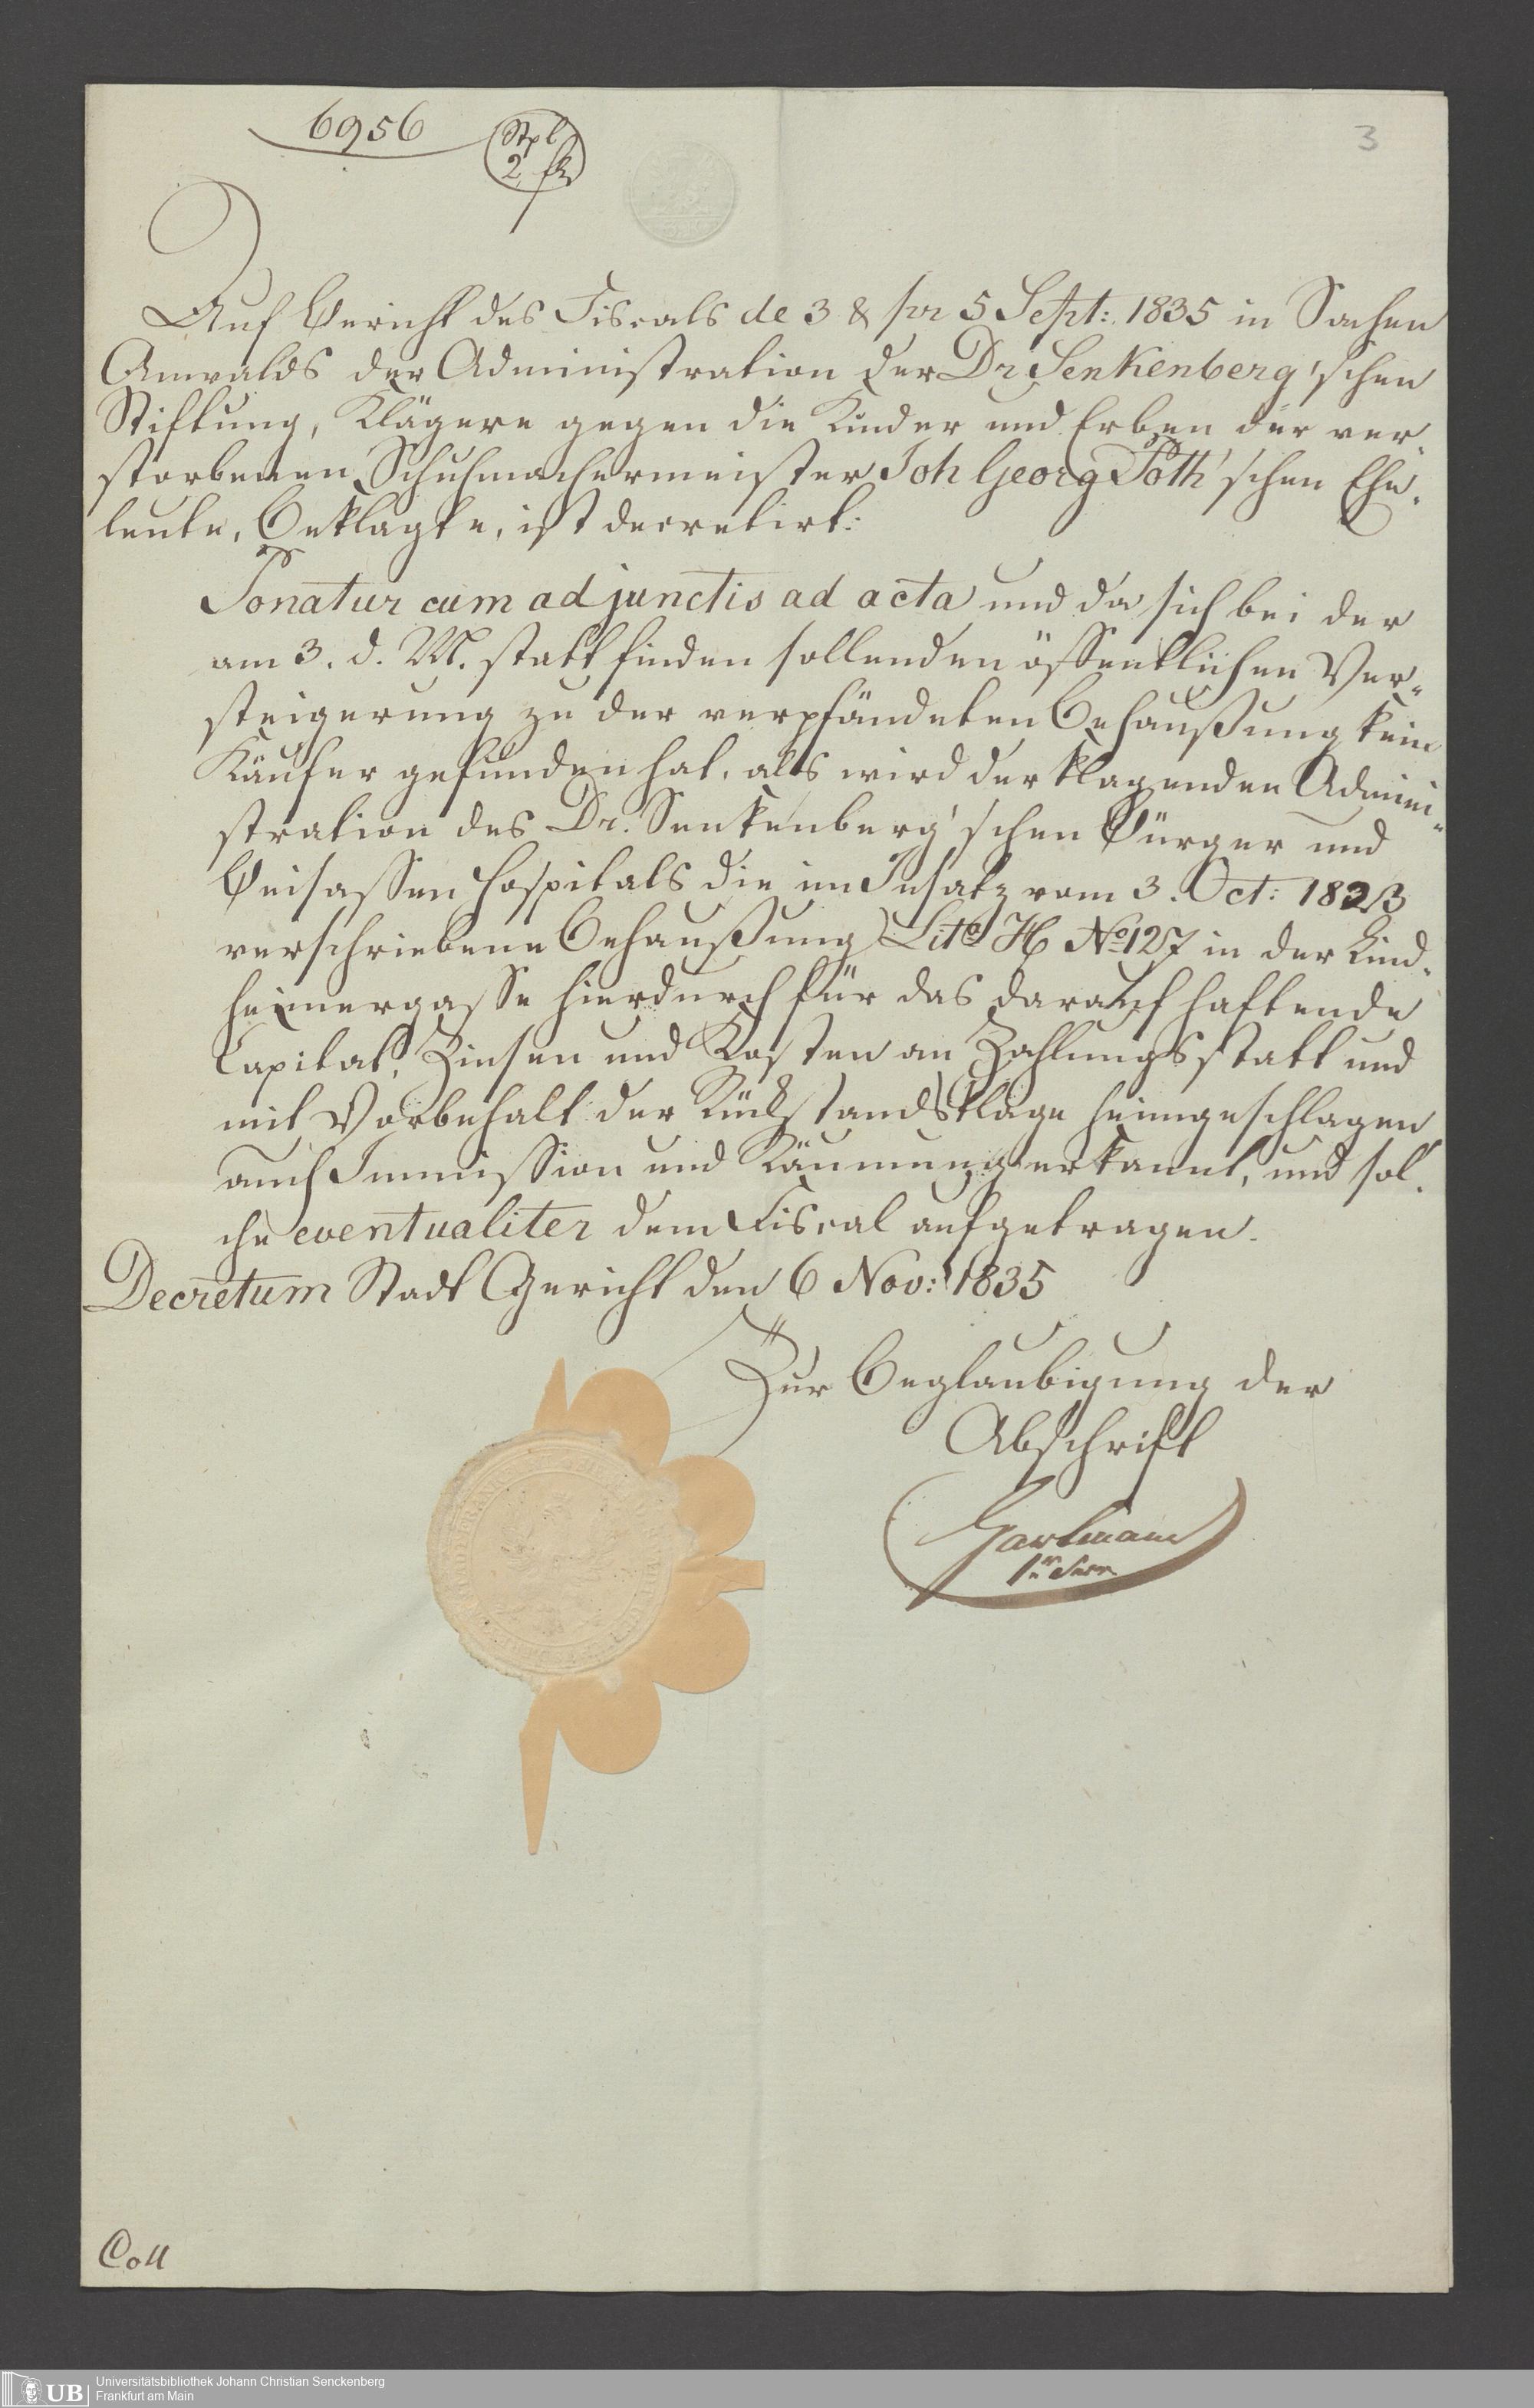 6956
Stpl
2 fl
3
Auf Bericht des Fiscals de 3 & pr 5 Sept: 1835 in Sachen
Anwalds der Administration der Dr Senkenberg'schen
Stiftung, Klägere gegen die Kinder und Erben der ver-
storbenen Schuhmachermeister Joh Georg Poth'schen Ehe-
leute, Beklagte, ist decretirt:
Ponatur cum adjunctis ad acta und da sich bei der
am 3. d. M. statt finden sollenden öffentlichen Ver-
steigerung zu der verpfändeten Behaußung kein
Käufer gefunden hat, als wird der klagenden Admini-
stration des Dr. Senkenberg'schen Bürger und
Beisassen Hospitals die im Insatz vom 3. Oct: 1823
verschriebene Behaußung Lita H No 127 in der Lind-
heimergasse hierdurch für das darauf haftende
Capital, Zinsen und Kosten an Zahlungsstatt und
mit Vorbehalt der Rückstandsklage heimgeschlagen
auch Immission und Räumung erkannt, und sol-
che eventualiter dem Fiscal aufgetragen.
Decretum Stadt Gericht den 6 Nov: 1835
Zur Beglaubigung der
Abschrift
Hartmann
Coll
UB
Universitätsbibliothek Johann Christian Senckenberg
Frankfurt am Main